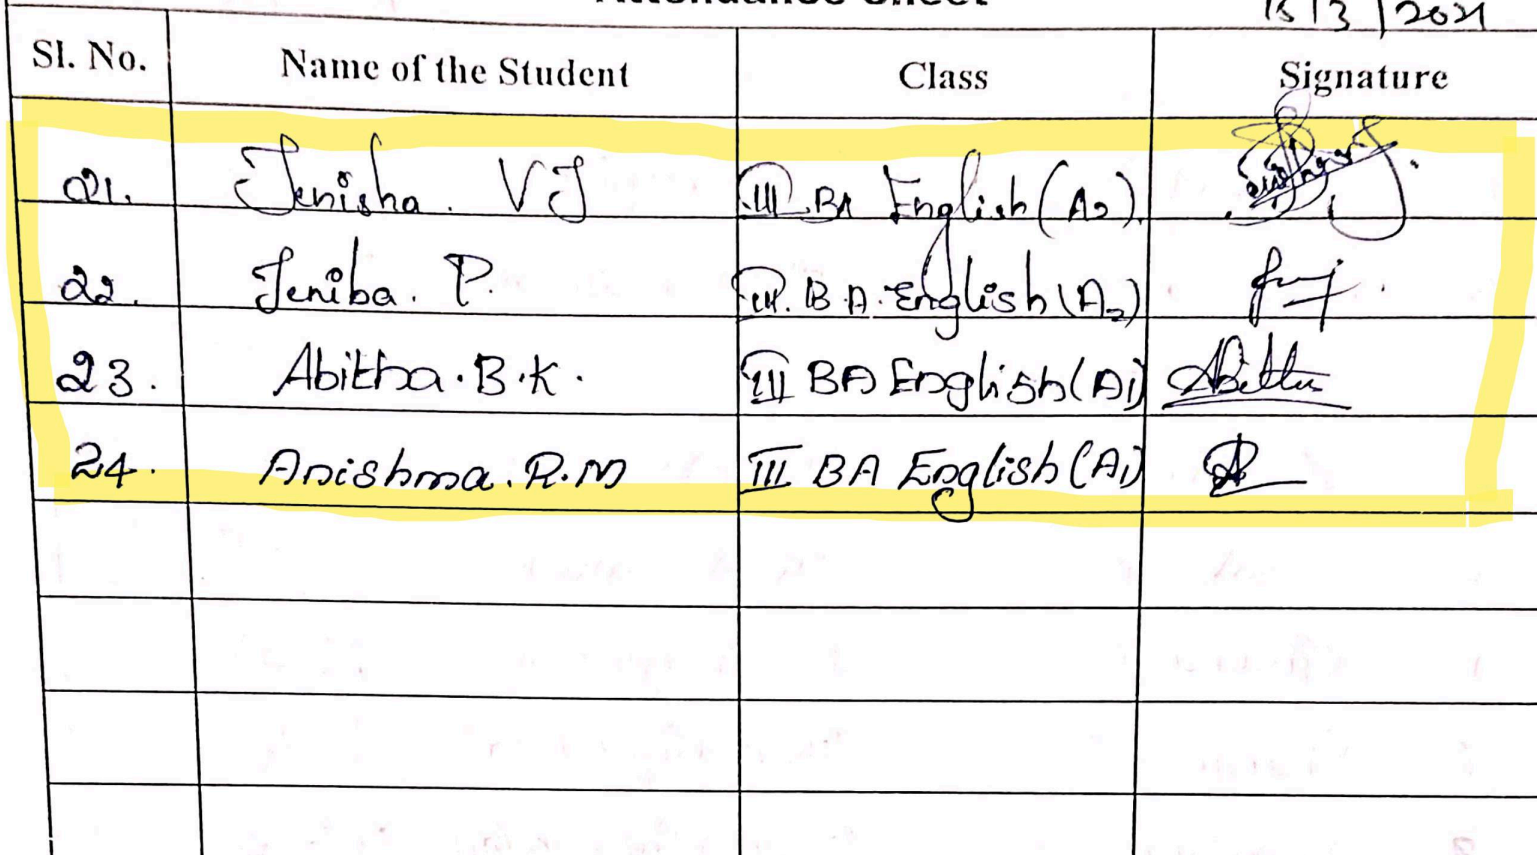 Attendance Sheet
15/3/2021
Sl. No. Name of the Student Class Signature
21. Jenisha. V J III BA English (A2)
22. Jeniba. P. III. B.A. English (A2)
23. Abitha. B.K. III BA English (A1) Abitha
24. Anishma. R.M III BA English (A1)